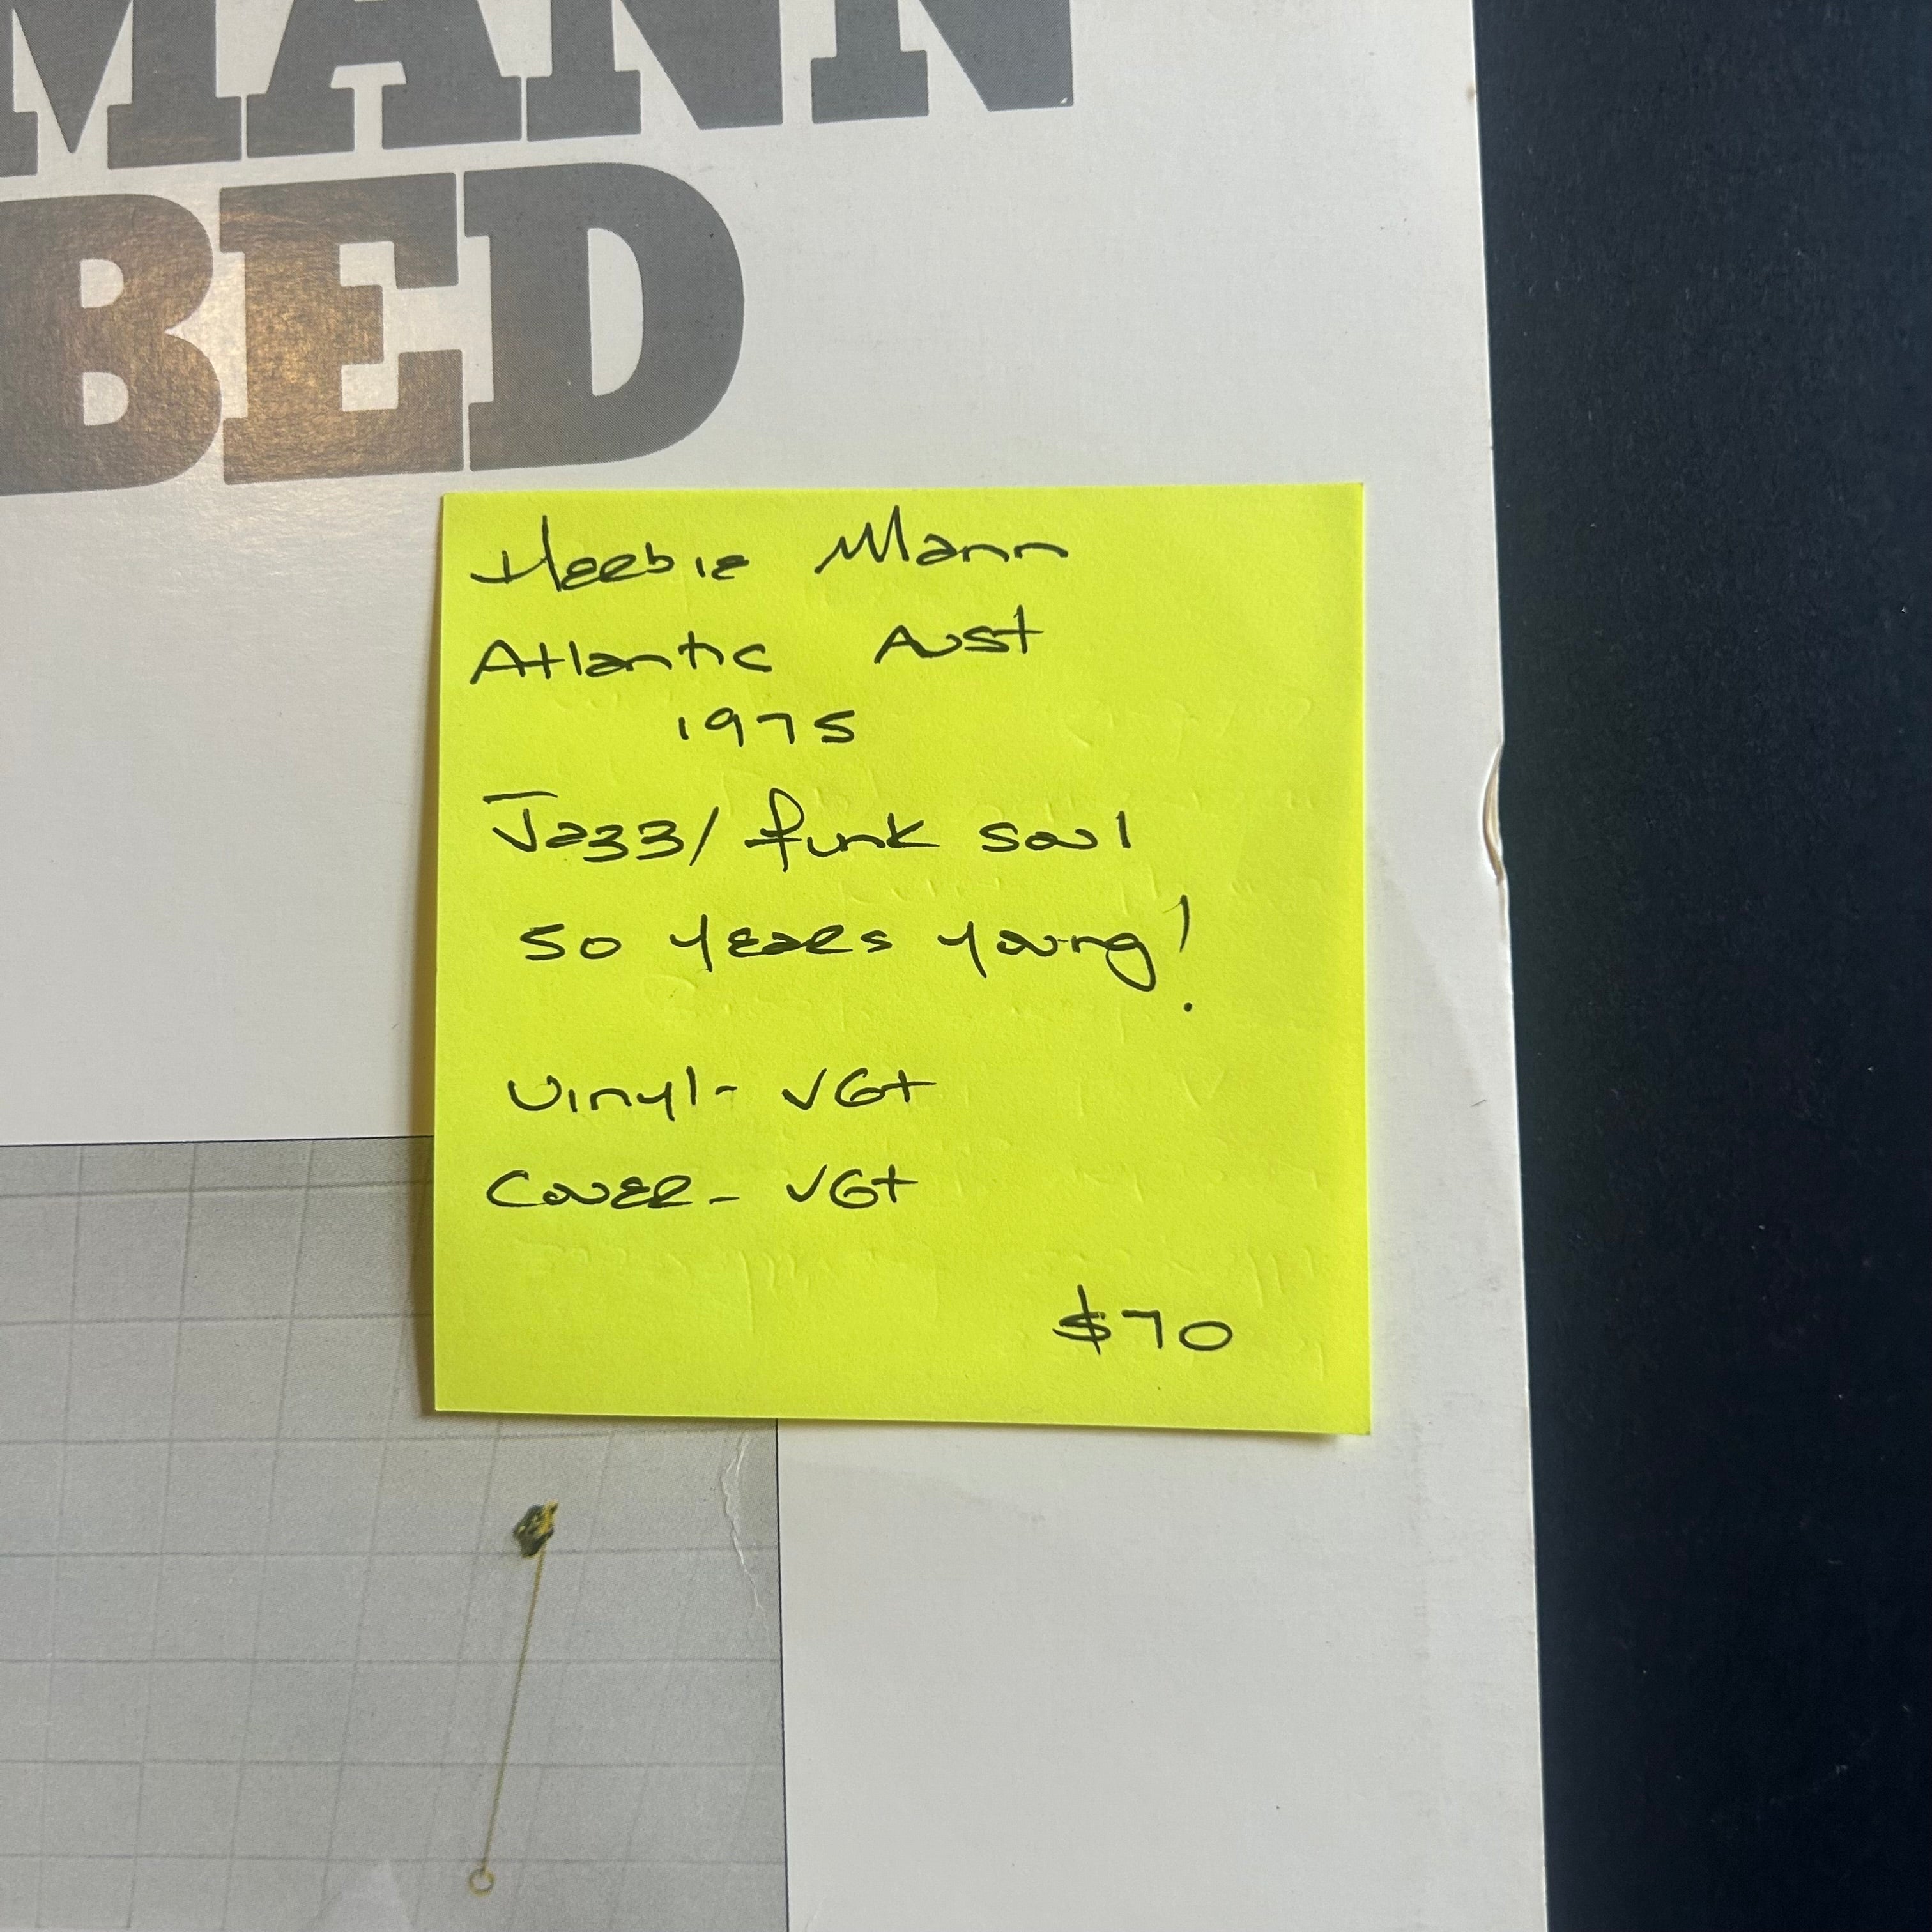 MANN
BED
Herbie Mann
Atlantic Aust
1975
Jazz/funk soul
50 years young!
Vinyl- VG+
Cover- VG+
$70